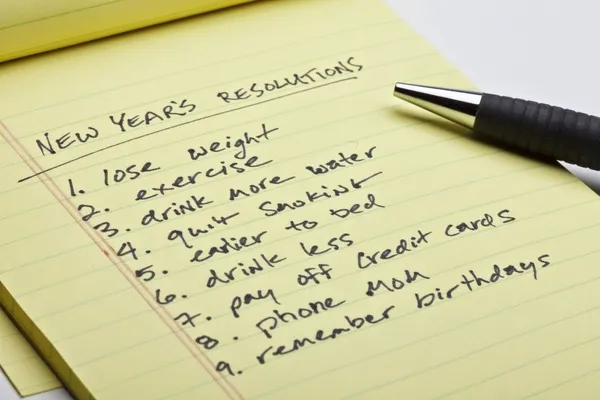 NEW YEAR'S RESOLUTIONS
1. lose weight
2. exercise
3. drink more water
4. quit smoking
5. earlier to bed
6. drink less
7. pay off credit cards
8. phone Mom
9. remember birthdays